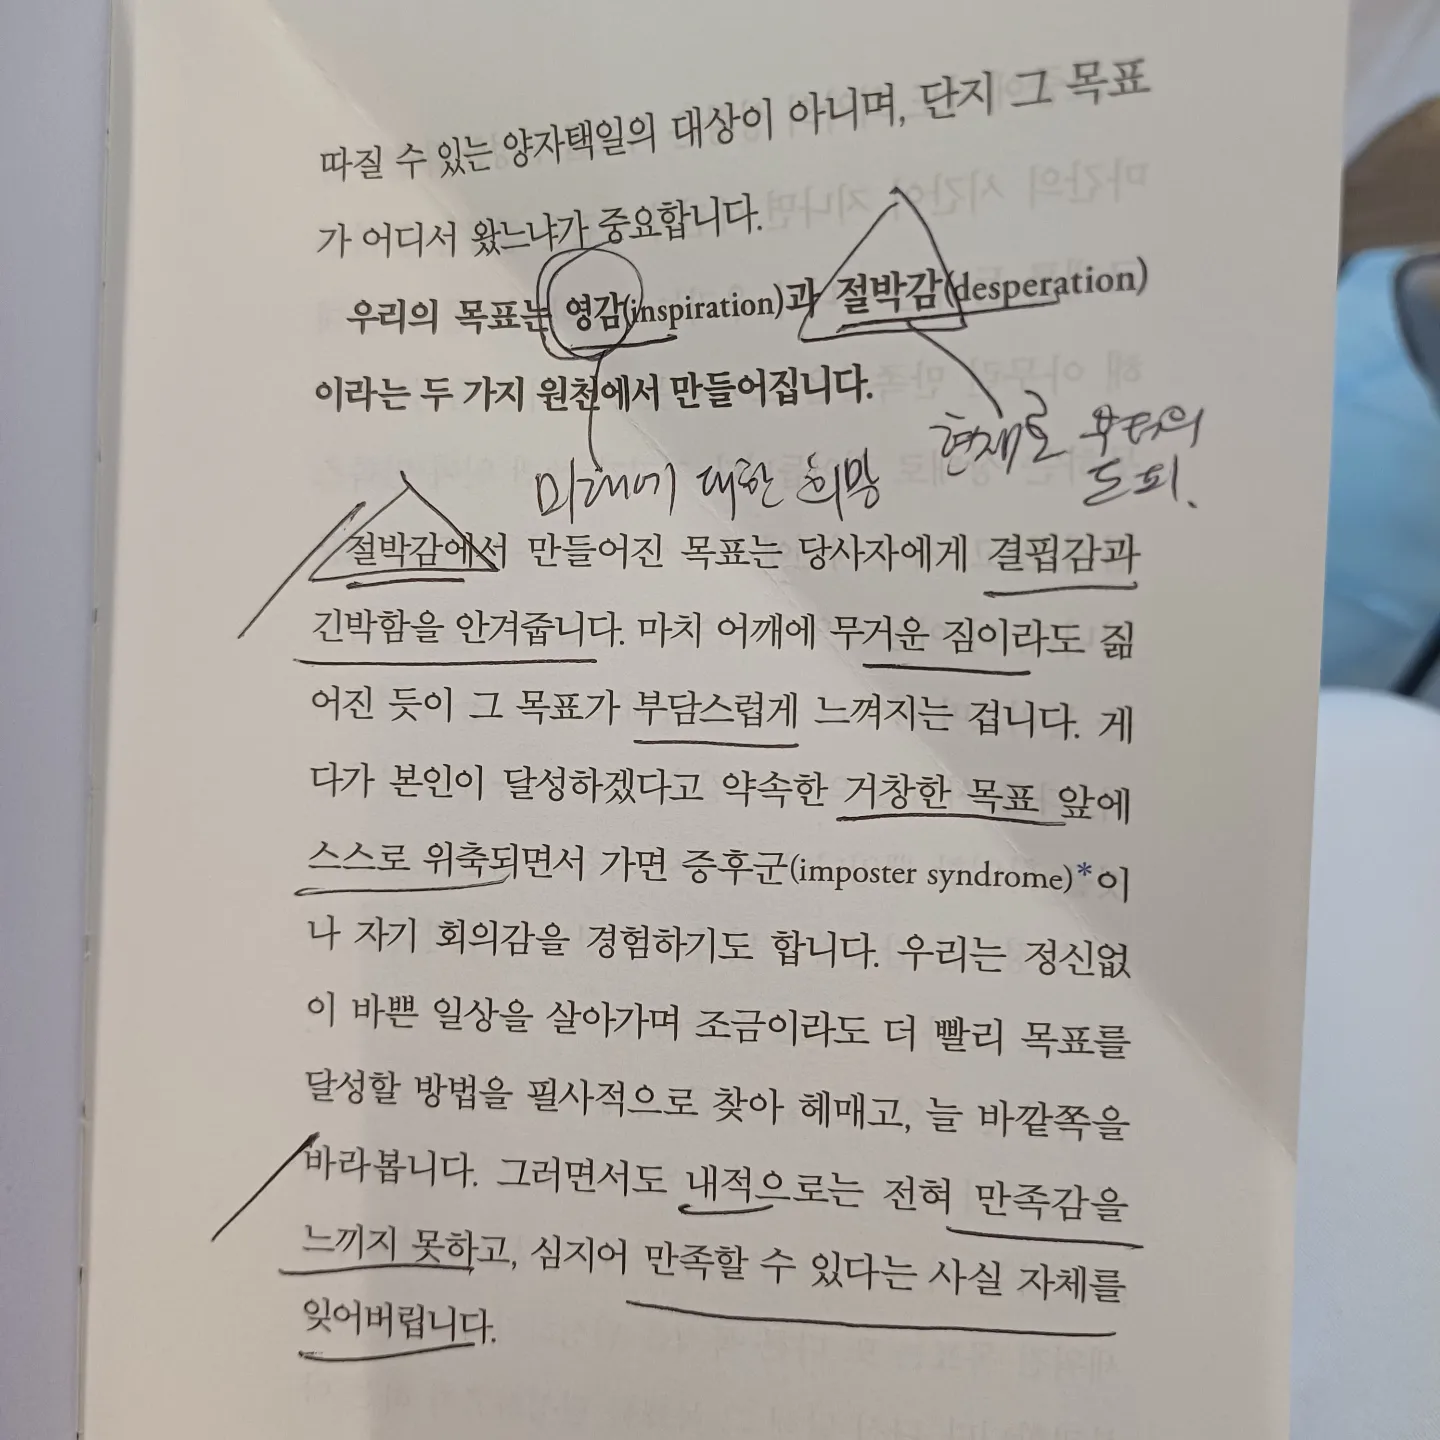 따질 수 있는 양자택일의 대상이 아니며, 단지 그 목표
가 어디서 왔느냐가 중요합니다.
우리의 목표는 영감(inspiration)과 절박감(desperation)
이라는 두 가지 원천에서 만들어집니다.
미래에 대한 희망
현재로 부터의
도피.
절박감에서 만들어진 목표는 당사자에게 결핍감과
긴박함을 안겨줍니다. 마치 어깨에 무거운 짐이라도 짊
어진 듯이 그 목표가 부담스럽게 느껴지는 겁니다. 게
다가 본인이 달성하겠다고 약속한 거창한 목표 앞에
스스로 위축되면서 가면 증후군(imposter syndrome)*이
나 자기 회의감을 경험하기도 합니다. 우리는 정신없
이 바쁜 일상을 살아가며 조금이라도 더 빨리 목표를
달성할 방법을 필사적으로 찾아 헤매고, 늘 바깥쪽을
바라봅니다. 그러면서도 내적으로는 전혀 만족감을
느끼지 못하고, 심지어 만족할 수 있다는 사실 자체를
잊어버립니다.